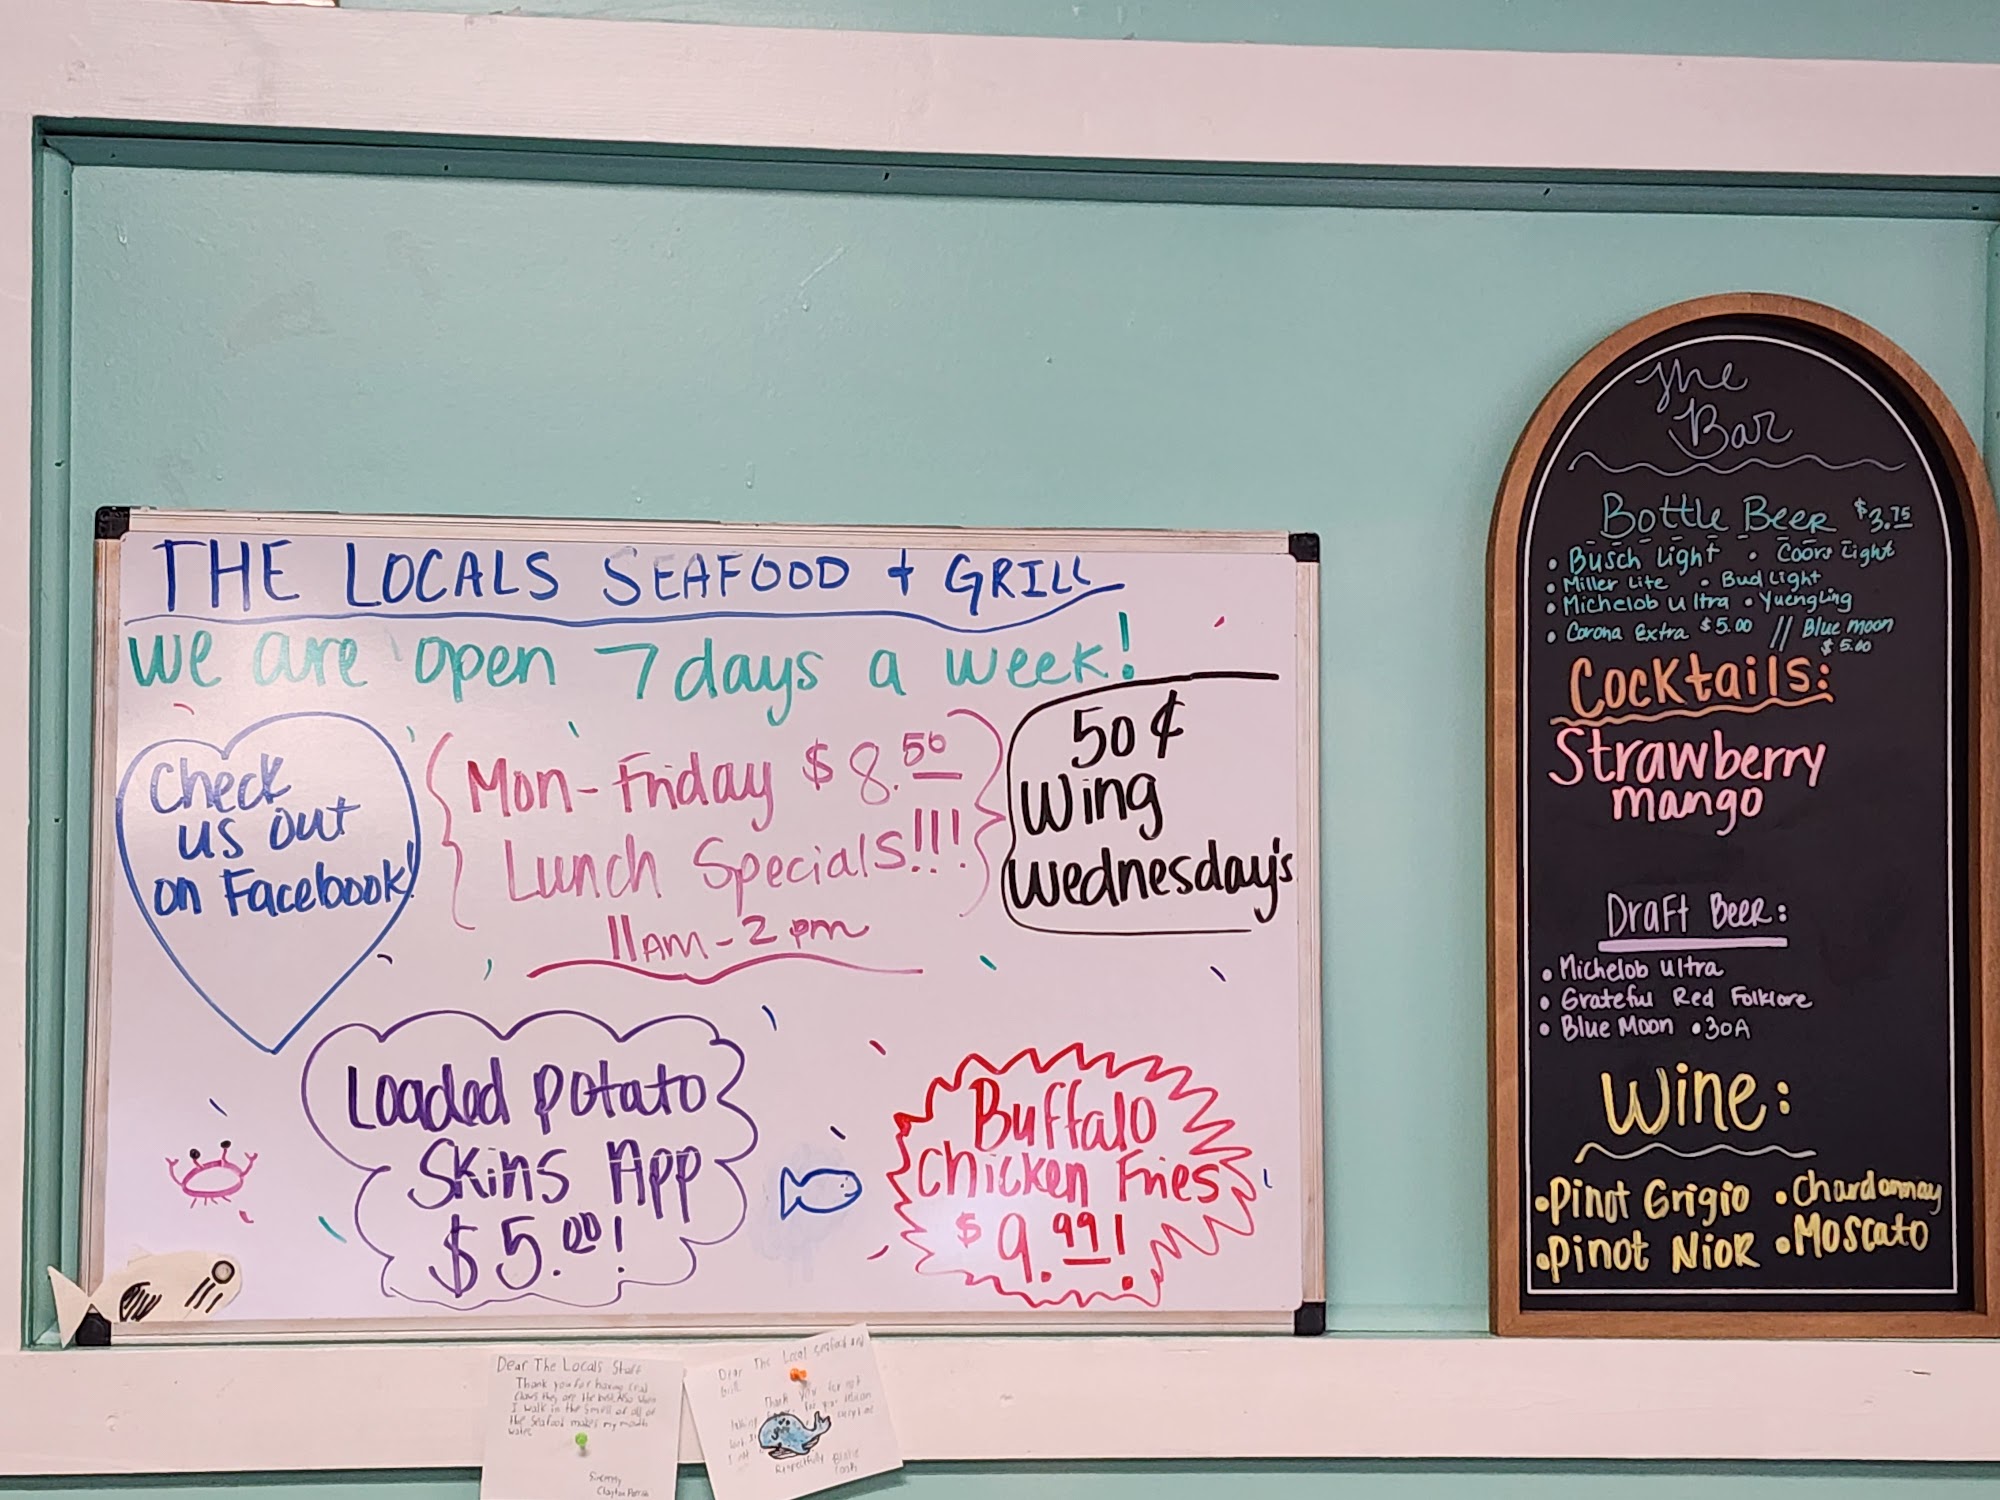 THE LOCALS SEAFOOD + GRILL
We are open 7 days a week!
Check
us out
on Facebook!
Mon-Friday $8.50
Lunch Specials!!!
11AM-2pm
50¢
Wing
Wednesday's
Loaded potato
Skins App
$5.00!
Buffalo
Chicken Fries
$9.99!
The
Bar
Bottle Beer $3.75
• Busch Light • Coors Light
• Miller Lite • Bud Light
• Michelob Ultra • Yuengling
• Corona Extra $5.00 // Blue moon
$5.00
Cocktails:
Strawberry
mango
Draft Beer:
• Michelob Ultra
• Grateful Red Folklore
• Blue Moon • 30A
Wine:
• Pinot Grigio • Chardonnay
• Pinot Nior • Moscato
Dear The Locals Staff
Thank you for having crab
claws they are the best Also when
I walk in the smell of all of
the seafood makes my mouth
water
Sincerely,
Clayton
Dear The Local Seafood and
Grill
Thank you for not
for your
Respectfully Blake